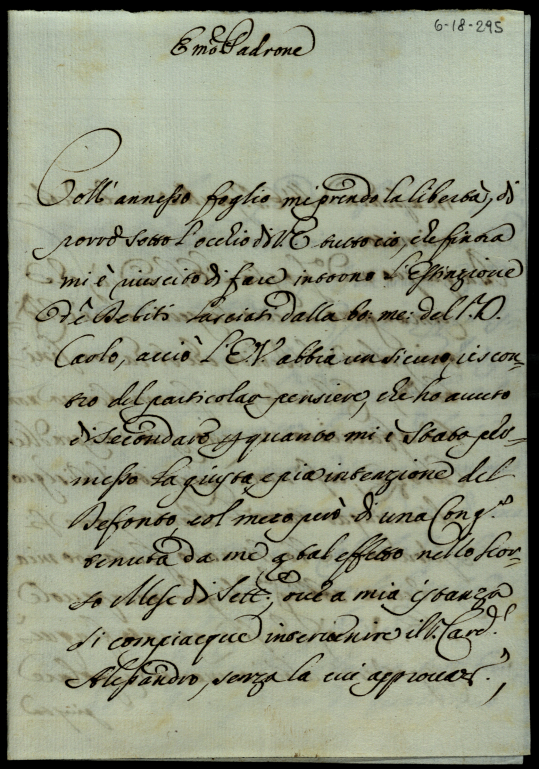 6-18-295
Emo Padrone
Coll' annesso foglio mi prendo la libertà, di
porre sotto l'occhio di V.E. tutto ciò, che finora
mi è riuscito di fare intorno l'Estinzione
de Debiti lasciati dalla bo: me: del S. D.
Carlo, acciò l'E.V. abbia un sicuro riscon-
tro del particolar pensiere, che ho avuto
di secondare p quanto mi è stato per-
messo la giusta, e pia intenzione del
Defonto, col mezo però di una Cong.e
tenuta da me p tal effetto nello scor-
so Mese di Sett.e, ove a mia istanza
si compiacque intervenire il S. Card.l
Alessandro, senza la cui approvaz.e,